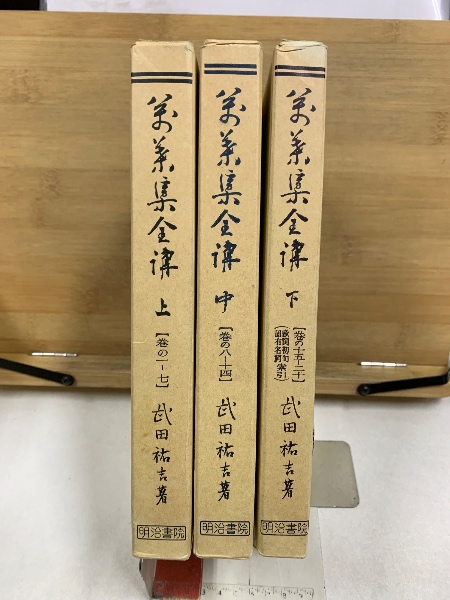 萬葉集全講 上
【巻の一−七】
武田祐吉著
明治書院
萬葉集全講 中
【巻の八−十四】
武田祐吉著
明治書院
萬葉集全講 下
【巻の十五−二十】
(歌詞初句
固有名詞索引)
武田祐吉著
明治書院